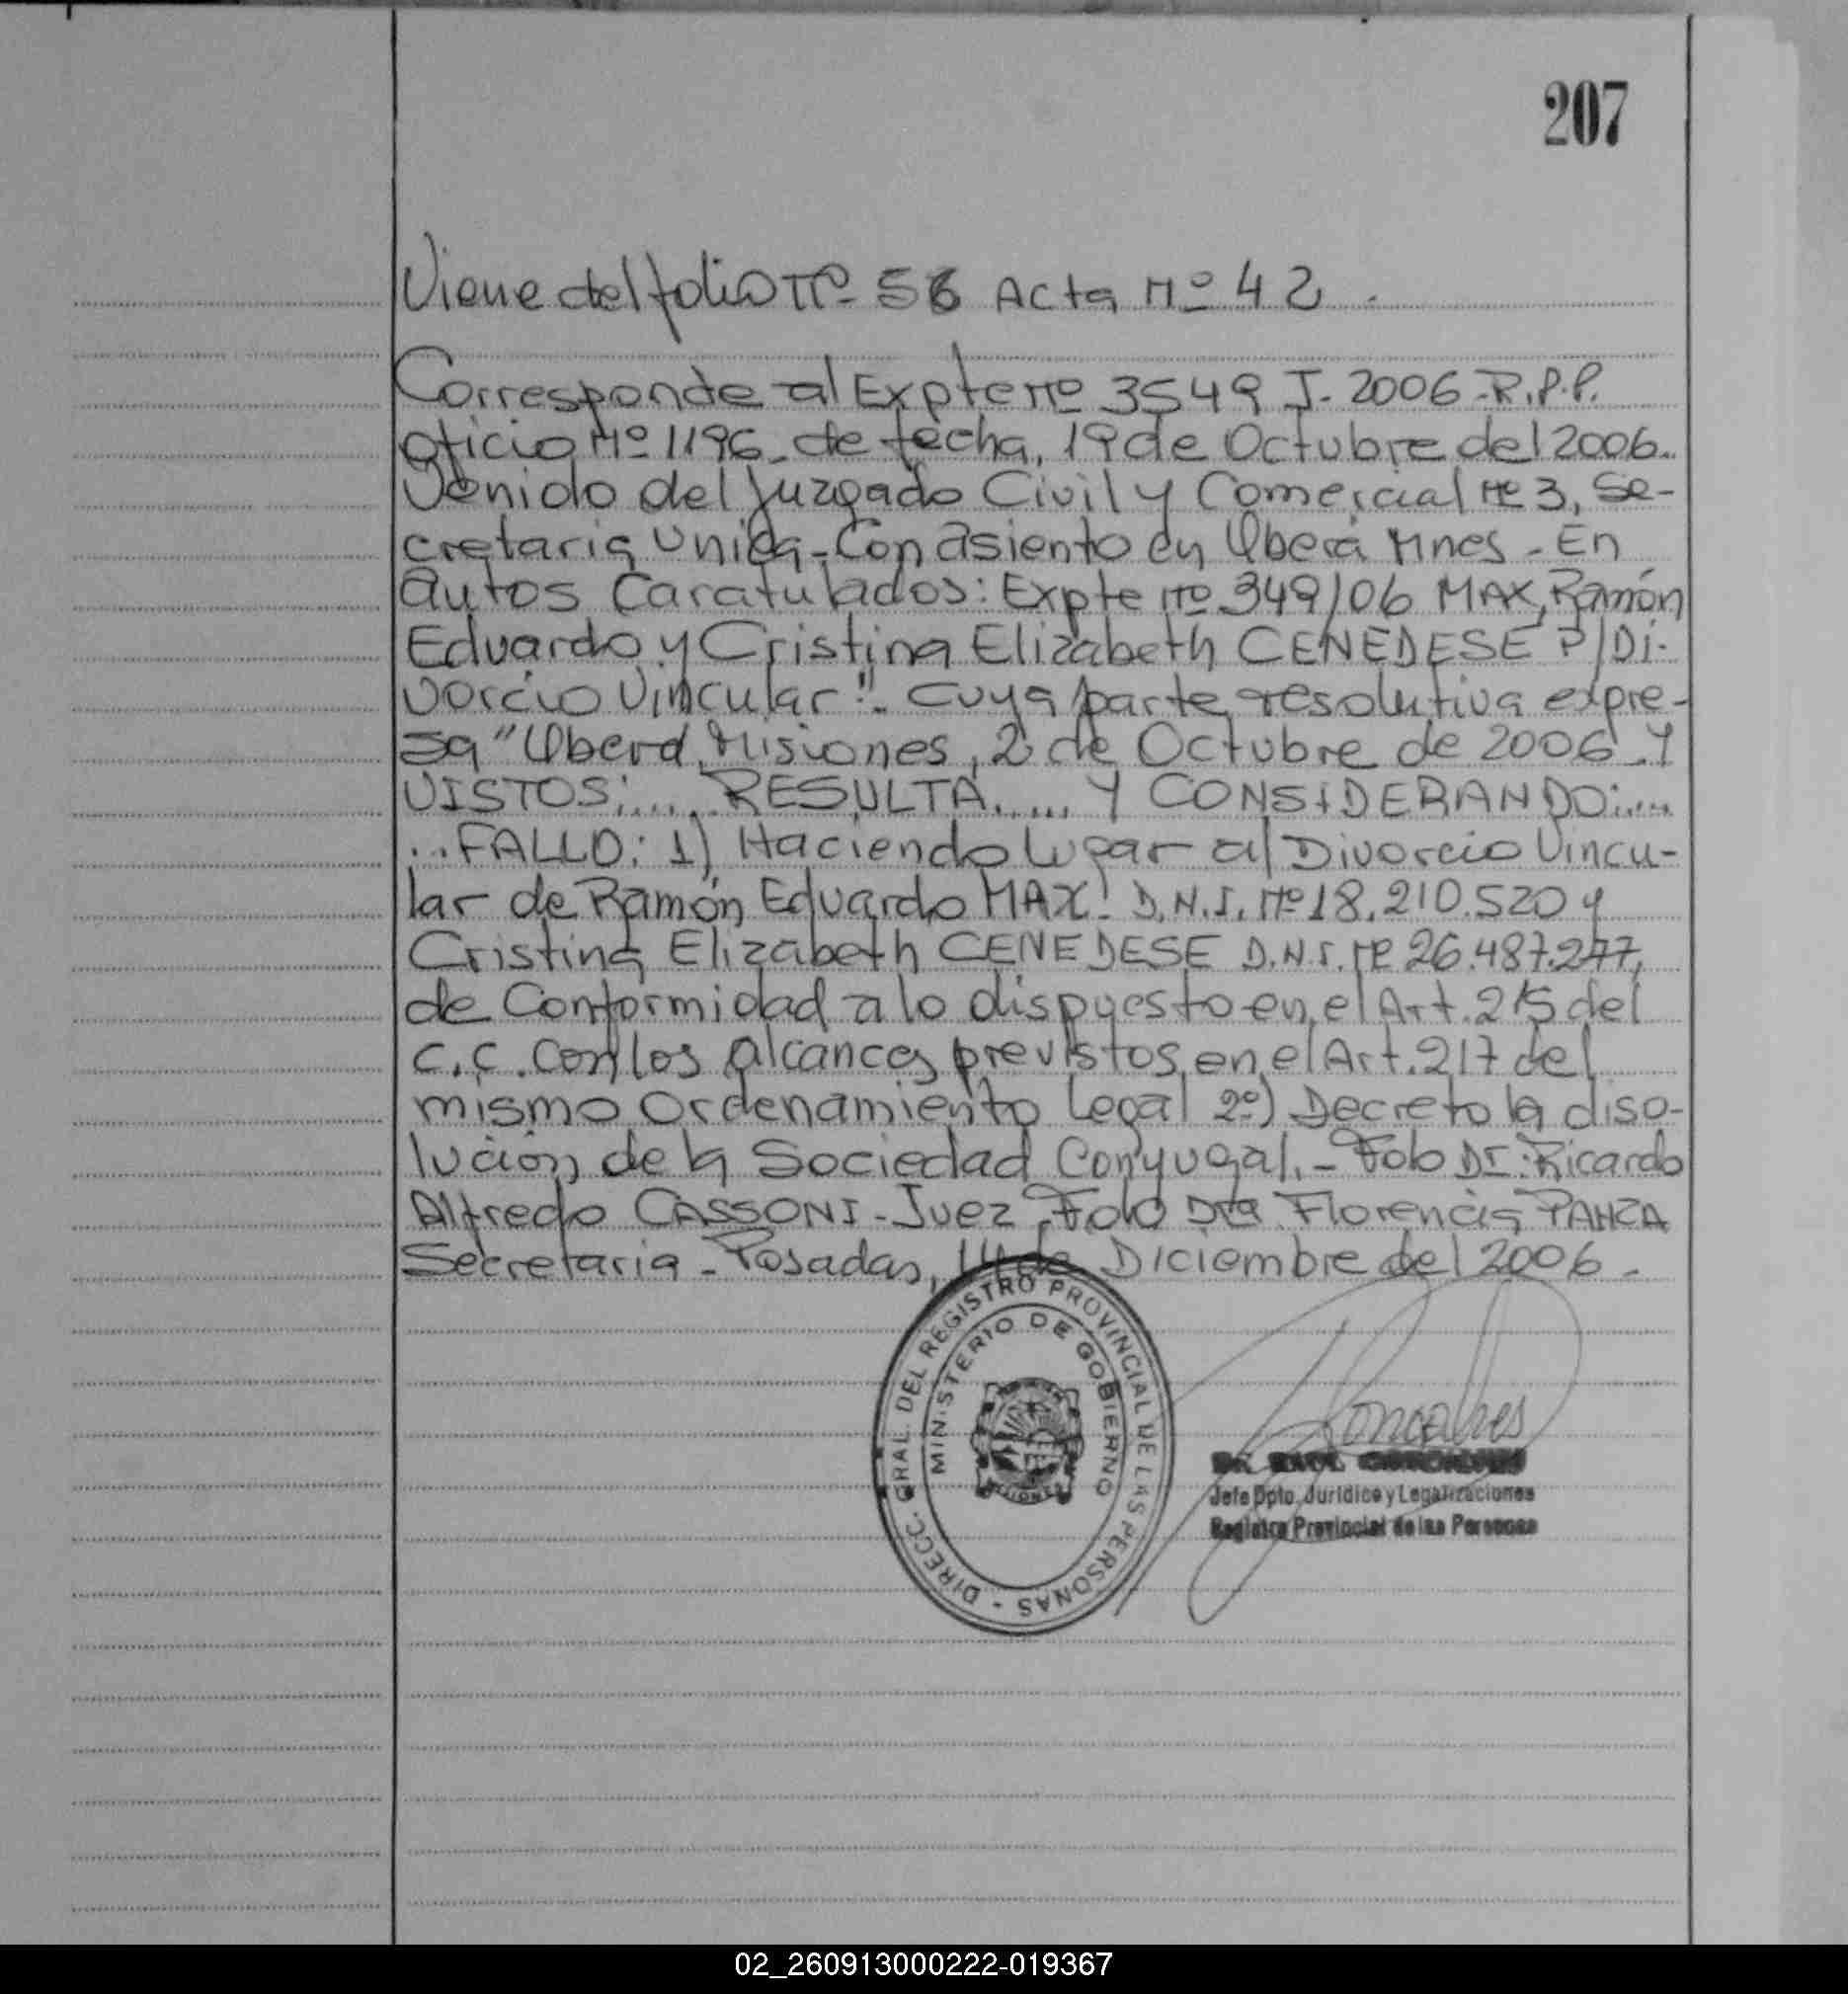 207
Viene del folio Nº 56 Acta Nº 42.
Corresponde al Expte Nº 3549 J- 2006-R.P.P.
oficio Nº 1196- de fecha, 19 de Octubre del 2006.
Venido del Juzgado Civil y Comercial Nº 3, Se-
cretaria Unica- Con asiento en Oberá Mnes - En
autos Caratulados: Expte Nº 349/06 MAX, Ramón
Eduardo y Cristina Elizabeth CENEDESE P/Di-
vorcio Vincular". cuya parte resolutiva expre-
sa "Oberá, Misiones, 2 de Octubre de 2006. Y
VISTOS:.... RESULTA..... Y CONSIDERANDO:....
...FALLO: 1) Haciendo lugar al Divorcio Vincu-
lar de Ramón Eduardo MAX! D.N.I. Nº 18.210.520 y
Cristina Elizabeth CENEDESE D.N.I. Nº 26.487.277,
de Conformidad a lo dispuesto en el Art. 215 del
C.C. con los alcances previstos en el Art. 217 del
mismo Ordenamiento Legal 2º) Decreto la diso-
lución de la Sociedad Conyugal.- Fdo Dr. Ricardo
Alfredo CASSONI - Juez. Fdo Dra Florencia PANZA
Secretaria - Posadas, 14 de Diciembre del 2006.
DIRECC. GRAL. DEL REGISTRO PROVINCIAL DE LAS PERSONAS -
MINISTERIO DE GOBIERNO
MISIONES
Goncalves
Jefe Dpto. Jurídico y Legalizaciones
Registro Provincial de las Personas
02_260913000222-019367